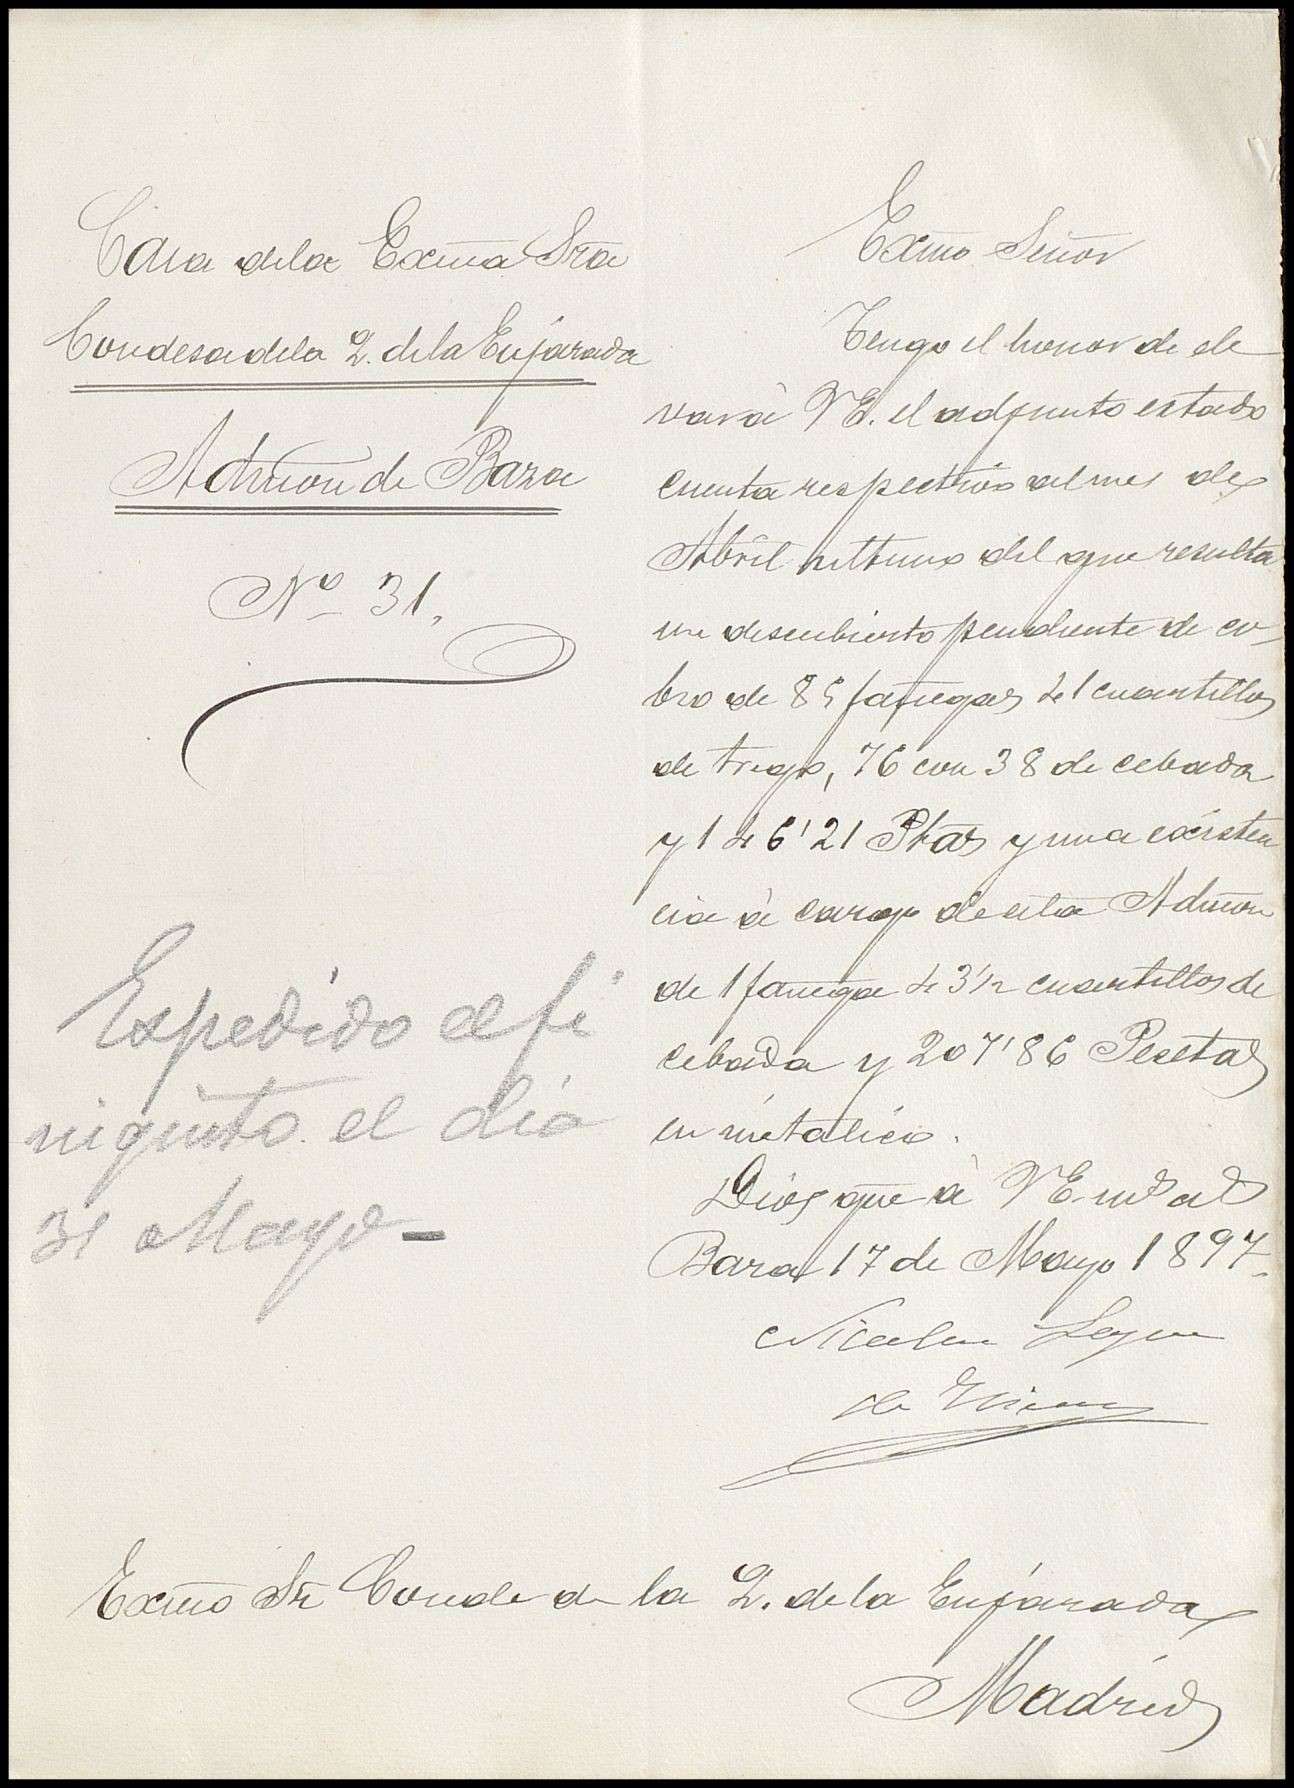 Casa de la Exma Sra
Condesa de la Q. de la Enjarada
Admon de Baza
Nº 31.
Expedido el fi
niquito el dia
31 Mayo -
Exmo Señor
Tengo el honor de ele
var à VE. el adjunto estado
cuenta respectivo al mes de
Abril ultimo del que resulta
un descubierto pendiente de co
bro de 85 fanegas 41 cuartillos
de trigo, 76 con 38 de cebada
y 146'21 Ptas y una existen
cia à cargo de esta Admon
de 1 fanega 43½ cuartillos de
cebada y 207'86 Pesetas
en metalico.
Dios gue à VE. ms as
Baza 17 de Mayo 1897.
Nicolas
de
Exmo Sr Conde de la Q. de la Enjarada
Madrid